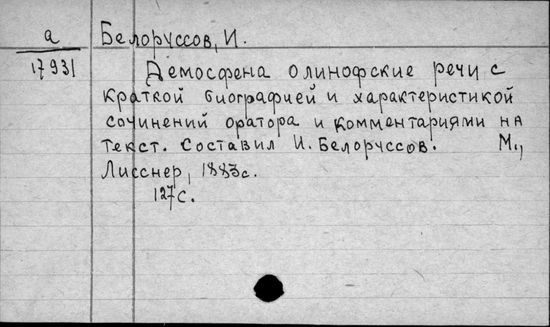 а Белоруссов, И.
17931 Демосфена олинофские речи с
краткой биографией и характеристикой
сочинений оратора и комментариями на
текст. Составил И. Белоруссов. М.,
Лисснер, 1883г.
127с.